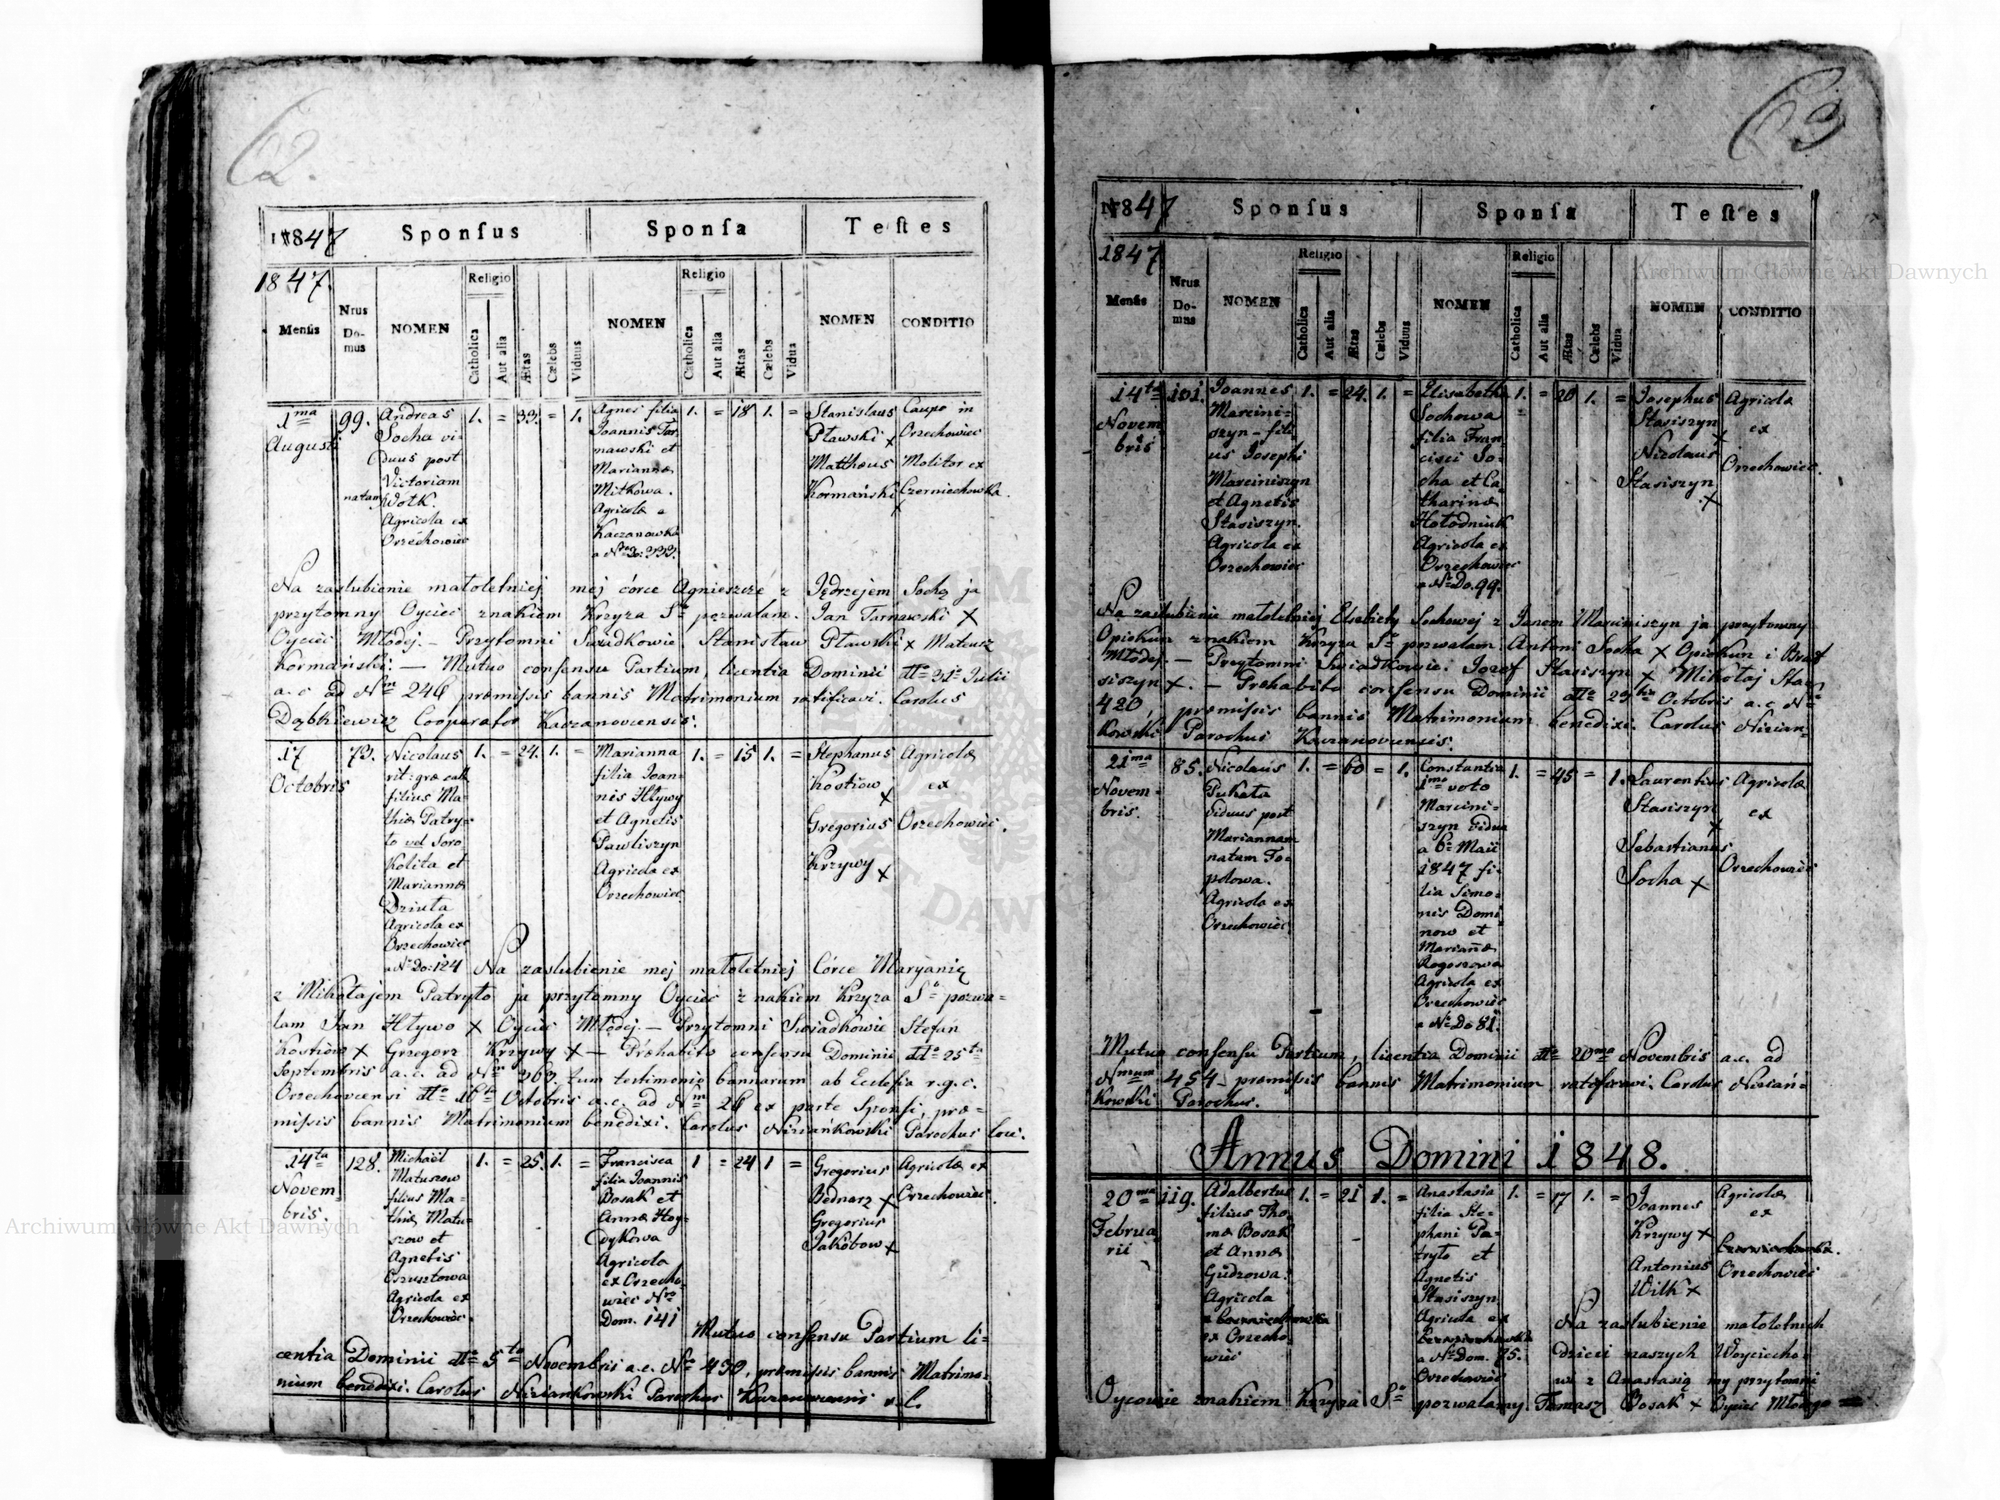 62.
17847 Sponsus Sponsa Testes
1847.
Mensis
Nrus Domus
NOMEN
Religio
Catholica
Aut alia
Ætas
Cælebs
Viduus
NOMEN
Religio
Catholica
Aut alia
Ætas
Cælebs
Vidua
NOMEN
CONDITIO
1ma
Augusti
99.
Andreas
Socha vi-
duus post
Victoriam
natam Wotk.
Agricola ex
Orzechowiec
1. = 33. = 1.
Agnes filia
Joannis Tar-
nawski et
Mariannæ
Mitkowa.
Agricolæ e
Kaczanowka
1. = 18 1. =
Stanislaus
Pławski x
Matthæus
Kormański
Caupo in
Orzechowiec
Molitor ex
Czerniechowka.
x
Na zaslubienie małoletniej mej córce Agnieszcze z Jędrzejem Sochą ja
przytomny Oyciec znakiem Krzyża So pozwalam. Jan Tarnawski x
Oyciec Młodej. — Przytomni Swiadkowie Stanisław Pławski x Mateusz
Kormański. — Mutuo consensu Partium, licentia Dominii dto 31o Julii
a. c ad Nm 246 præmissis bannis Matrimonium ratificavi. Carolus
Dąbkiewicz Cooperator Kaczanoviensis.
17
Octobris
73.
Nicolaus
rit: græ cath
filius Ma-
thiæ Patry-
to vel Soro-
kolita et
Mariannæ
Dziuta
Agricola ex
Orzechowiec
a No Do: 124
1. = 24. 1. =
Marianna
filia Joan-
nis Hływy
et Agnetis
Pawliszyn
Agricola ex
Orzechowiec
1. = 15 1. =
Stephanus
Kostiow
x
Gregorius
Krzywy x
Agricolæ
ex
Orzechowiec.
Na zaslubienie mej małoletniej Córce Maryannie
z Mikołajem Patryło ja przytomny Oyciec znakiem Krzyża So pozwa-
lam Jan Hływo x Oyciec Młodej. — Przytomni Swiadkowie Stefan
Kostiow x Grzegorz Krzywy x — Præhabito consensu Dominii dto 25ta
Septembris a. c. ad Nm 263. tum testimonio bannorum ab Ecclesia r. g. c.
Orzechoviensi dto 16ta Octobris a. c. ad Nm 26 ex parte Sponsi, præ-
missis bannis Matrimonium benedixi. Carolus Niziańkowski Parochus loci.
14ta
Novem-
bris.
128.
Michaël
Matuszow
filius Ma-
thiæ Matu-
szow et
Agnetis
Agricola ex
Orzechowiec.
1. = 25. 1. =
Francisca
filia Joannis
Bosak et
Annæ Hog-
Agricola
ex Orzecho-
wiec Nro
Dom. 141
1 = 24 1 =
Gregorius
Bednarz x
Gregorius
Jakóbow x
Agricolæ ex
Orzechowiec.
Mutuo consensu Partium li-
centia Dominii dto 5ta Novembris a. c. No 430, præmissis bannis Matrimo-
nium benedixi. Carolus Niziankowski Parochus Kaczanoviensis
63
17847 Sponsus Sponsa Testes
1847
Mensis
Nrus Domus
NOMEN
Religio
Catholica
Aut alia
Ætas
Cælebs
Viduus
NOMEN
Religio
Catholica
Aut alia
Ætas
Cælebs
Vidua
NOMEN
CONDITIO
14ta
Novem
bris
101.
Joannes
Marcini-
szyn - fili-
us Josephi
Marciniszyn
et Agnetis
Stasiszyn.
Agricola ex
Orzechowiec
1. = 24. 1. =
Elisabetha
Sochowa
filia Fran-
cisci So-
cha et Ca-
tharinæ
Hołodniuk
Agricola ex
Orzechowiec
a No Do. 99.
1. = 20 1. =
Josephus
Stasiszyn
x
Nicolaus
Stasiszyn
x
Agricola
ex
Orzechowiec.
Na zaslubienie małoletniej Elsbiety Sochowej z Janem Marciniszyn ja przytomny
Opiekun znakiem Krzyża So pozwalam Antoni Socha x Opiekun i Brat
Młodej. — Przytomni Swiadkowie: Jozef Stasiszyn x Mikołaj Stasi-
siszyn x. — Præhabito consensu Dominii dto 29bris Octobris a. c No
420, præmissis bannis Matrimonium benedixi. Carolus Nizian-
kowski Parochus Kaczanoviensis.
21ma
Novem-
bris.
85.
Nicolaus
Pukała
viduus post
Mariannam
natam To-
polowa.
Agricola ex
Orzechowiec
1. = 60 = 1.
Constantia
1mo voto
Marcini-
szyn vidua
a 6o Maii
1847 fi-
lia Simo-
nis Domi-
now et
Mariannæ
Rogoszowa
Agricola ex
Orzechowiec
a No Do 81.
1. = 45 = 1.
Laurentius
Stasiszyn
x
Sebastianus
Socha x
Agricolæ
ex
Orzechowiec
Mutuo consensu Partium, licentia Dominii dto 20ma Novembris a. c. ad
Nmum 454 præmissis bannis Matrimonium ratificavi. Carolus Niziań-
kowski Parochus.
Annus Domini 1848.
20ma
Februa
rii
119.
Adalbertus
filius Tho-
mæ Bosak
et Annæ
Gudzowa.
Agricola
ex Orzecho-
wiec
1. = 21 1. =
Anastasia
filia Ste-
phani Pa-
tryło et
Agnetis
Stasiszyn
Agricola ex
a No Dom. 75.
Orzechowiec
1. = 17 1. =
Joannes
Krzywy x
Antonius
Wilk x
Agricolæ
ex
Orzechowiec
Na zaslubienie małoletnich
dzieci naszych Woyciecho-
wi z Anastasią my przytomni
Oycowie znakiem Krzyża So pozwalamy Tomasz Bosak x Oyciec Młodego
Archiwum Główne Akt Dawnych
Archiwum Główne Akt Dawnych